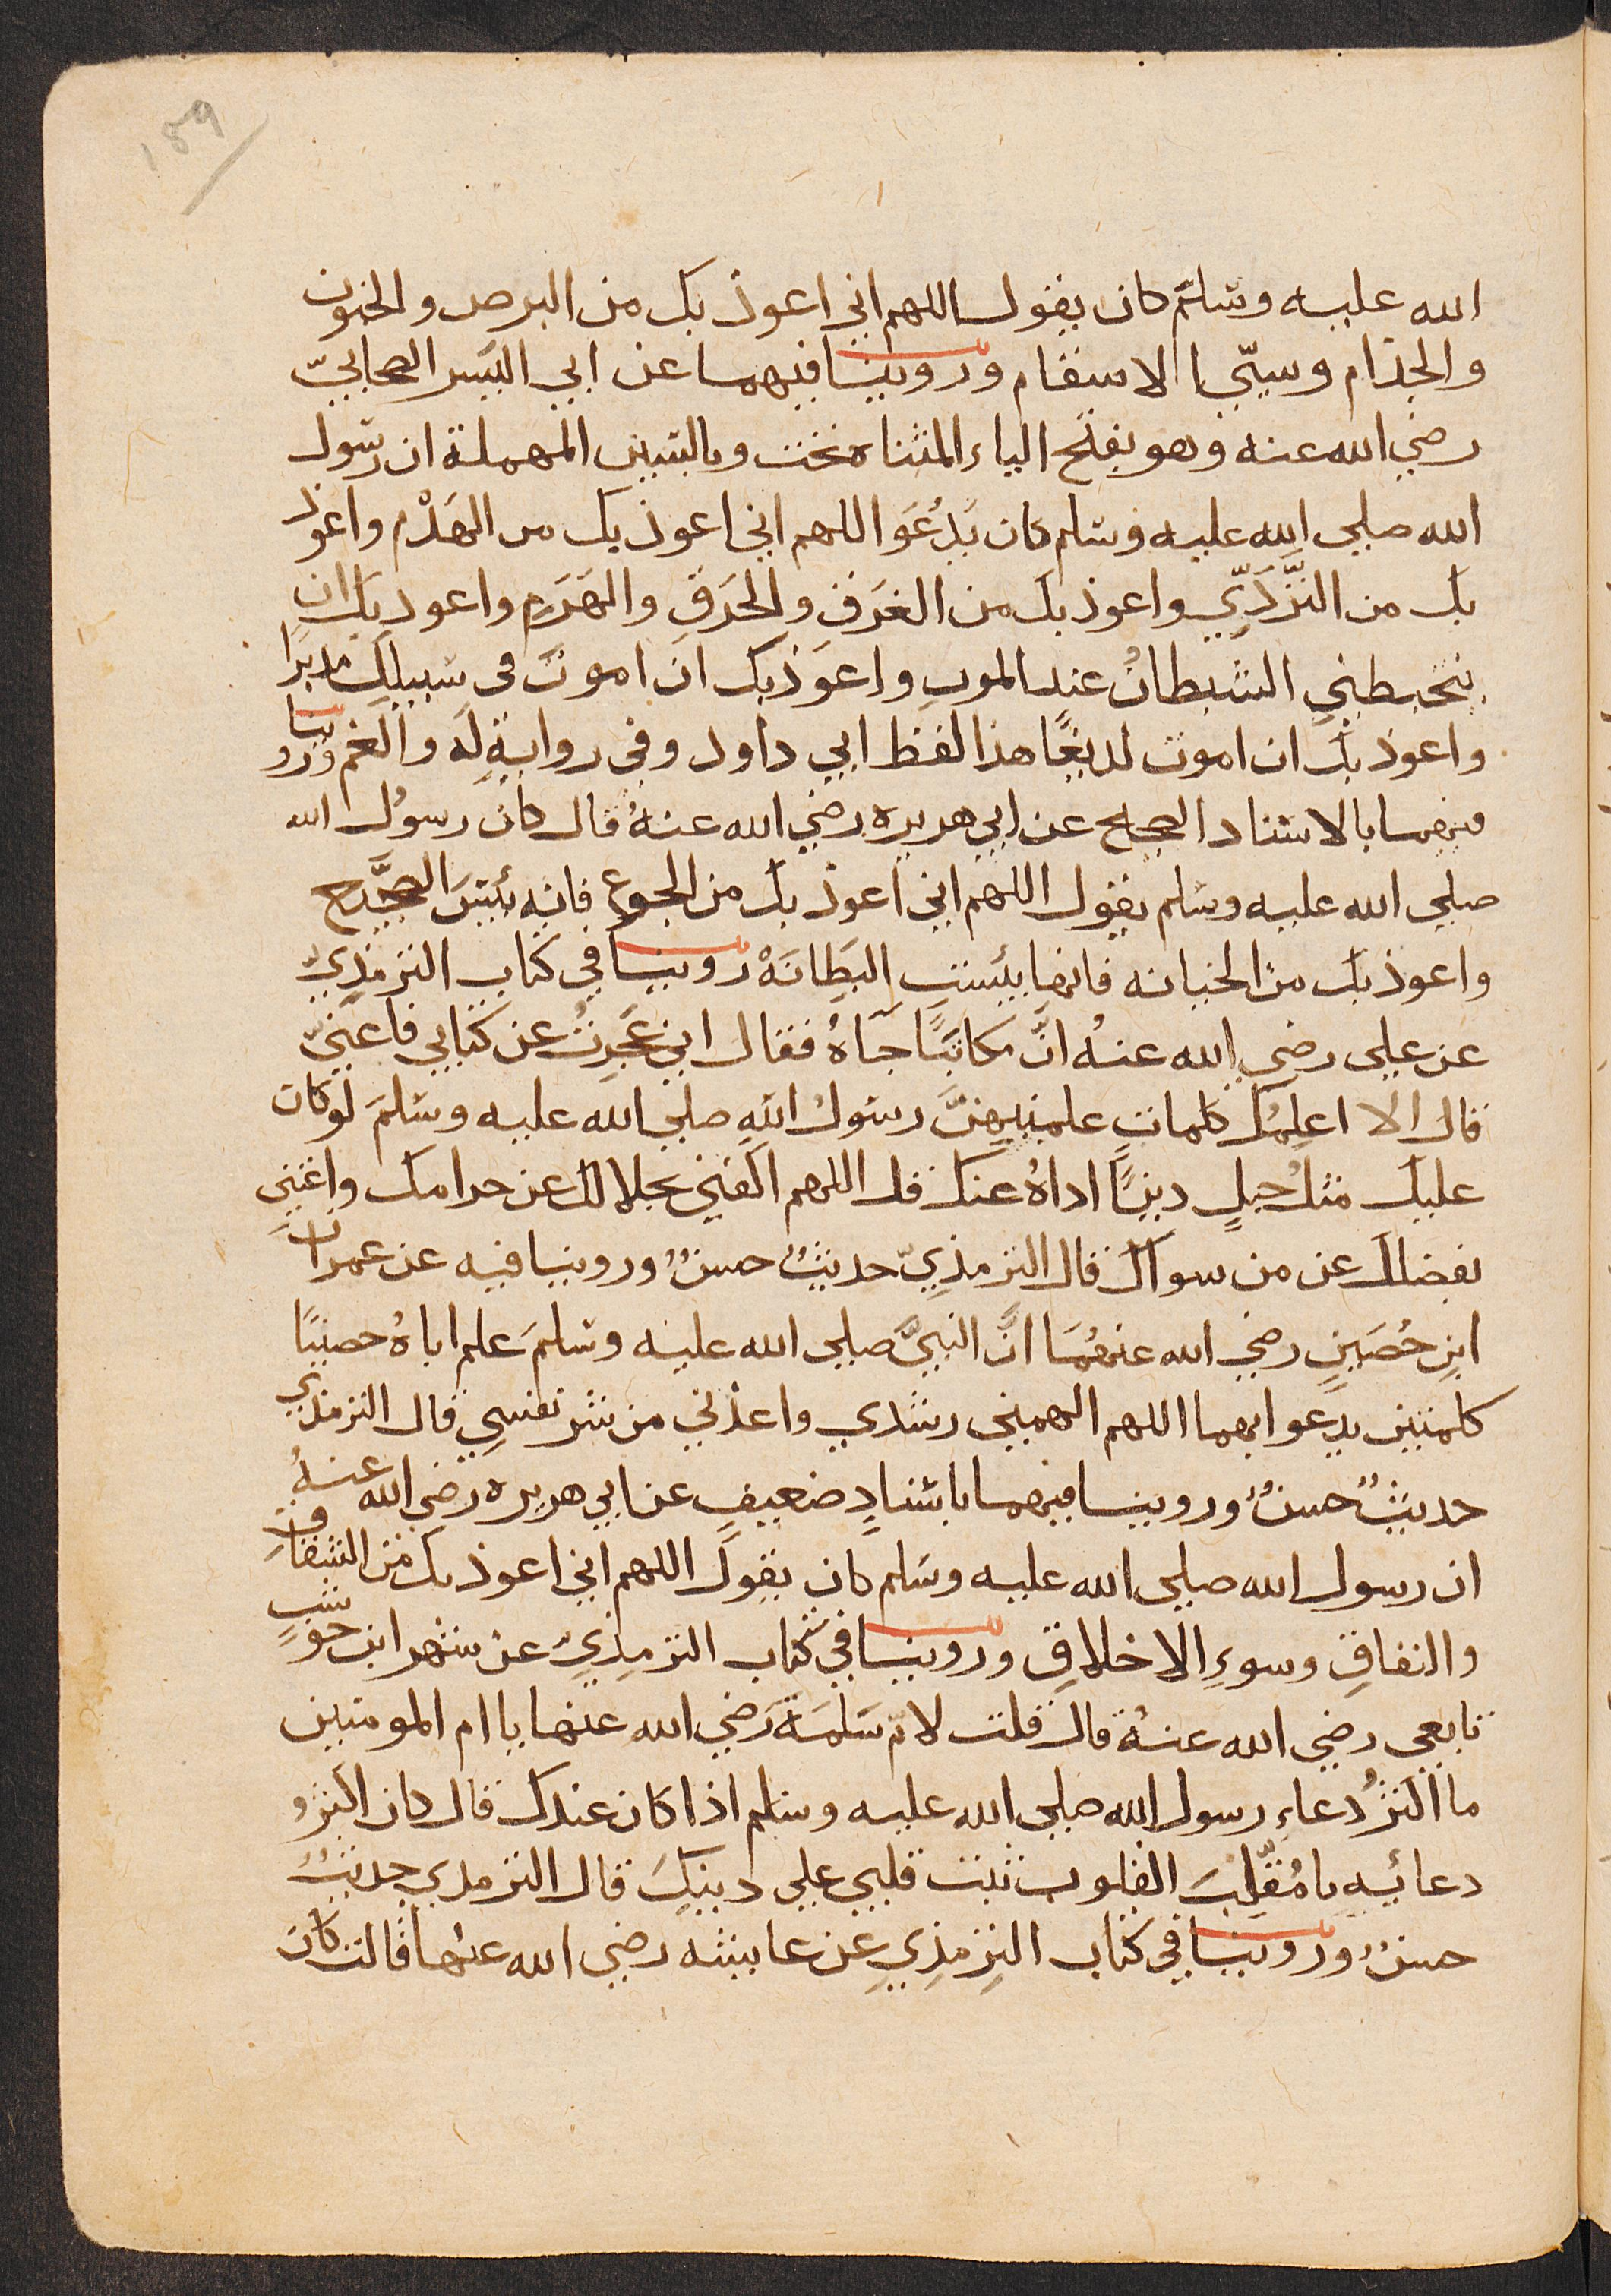 ١٥٩
الله عليه وسلّم كان يقول اللهم اني اعوذ بك من البرص والجنون
والجذام وسيّيء الاسقام وروينا فيهما عن ابي اليَسَر الصحابيّ
رضي الله عنه وهو بفتح الياء المثناه تحت وبالسين المهملة ان رسول
الله صلي الله عليه وسلم كان يَدْعُوَا اللهم اني اعوذ بك من الهَدْم واعوذ
بك من التَّرَدِّي واعوذ بك من الغَرَقِ والحَرَقِ والهَرَمِ واعوذ بك ان
يتخبطني الشيطانُ عند الموتِ واعوَذ بك ان اموتَ في سبيلِكَ مدبرًا
واعوذ بك ان اموت لديغًا هذا لفظ ابي داود وفي روايةٍ له والغم وروينا
فيهما بالاسناد الصحيح عن ابي هريره رضي الله عنهُ قال كان رسوُل الله
صلي الله عليه وسلم يقول اللهم اني اعوذ بك من الجوعِ فانه بئسَ الضَّجيع
واعوذ بك من الخيانه فانها بئستِ البَطِانَهْ روينا في كتاب الترمذيِ
عن علي رضي الله عنهُ انَّ مكاتبًا جَاهُ فقال اني عَجَزتُ عن كتابي فاعنيّ
قال الا اعلمُك كلماتٍ علمنيهنَّ رسولُ اللهِ صلي الله عليه وسلمَ لو كان
عليك مثلُ جبلٍ دينًا اداهُ عنك قل اللهم اكفني بحلالك عن حرامك واغنني
بفضلك عن من سواك قال الترمذيّ حديثٌ حسنٌ وروينا فيه عن عمران
ابنِ حُصَينٍ رضي الله عنهُمَا انَّ النبيَّ صلي الله عليه وسلمَ علم اباهُ حصينًا
كلمتين يدعو ابهما اللهم الهمني رشدي واعذني من شر نفسِي قال الترمذي
حديثٌ حسنٌ وروينا فيهما باسنادٍ ضعيفٍ عن ابي هريره رضي الله عنهُ
ان رسول الله صلي الله عليه وسَلم كان يقولَ اللهم اني اعوذ بك من الشقاقِ
والنفاقِ وسوءِ الاخلاقِ وروينا في كتاب الترمِذيِ عن شهر ابن حوشبٍ
تابعي رضي الله عنهُ قال قلت لامّ سَلَمَة رَضي الله عنها يا ام المومنين
ما اكثرُ دعاءِ رسول الله صلي الله عليه وسلم اذا كان عندك قال كان اكثرُ
دعائِهِ يا مُقلِّبَ القلوب ثبت قلبي علي دينِكَ قال الترمدي حديثٌ
حسنٌ وروينا في كتاب الترمذيِ عن عايشه رضي الله عنها قالت كان